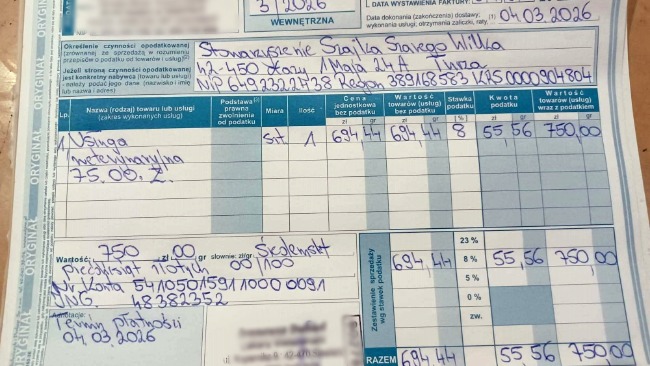 3/2026
WEWNĘTRZNA
DATA WYSTAWIENIA FAKTURY:
Data dokonania (zakończenia) dostawy,
wykonania usługi, otrzymania zaliczki, raty
04.03.2026
Określenie czynności opodatkowanej
(zrównanej ze sprzedażą w rozumieniu
przepisów o podatku od towarów i usług)
Jeżeli stroną czynności opodatkowanej
jest konkretny nabywca (towaru lub usługi)
- należy podać jego dane (nazwisko i imię
lub nazwa i adres)
Stowarzyszenie Szajka Szarego Wilka
42-450 Łazy 1 Maja 24A Turza
NIP 6492322438 Regon 389168583 KRS 0000904804
Lp. Nazwa (rodzaj) towaru lub usługi (zakres wykonanych usług) Podstawa prawna zwolnienia od podatku Miara Ilość Cena jednostkowa bez podatku Wartość towarów (usług) bez podatku Stawka podatku Kwota podatku Wartość towarów (usług) wraz z podatkiem
zł gr zł gr [%] zł gr zł gr
1 Usługa szt 1 694,44 694,44 8 55,56 750,00
weterynaryjna
75.00.Z
Wartość: 750 zł 00 gr słownie: zł/gr Siedemset
pięćdziesiąt złotych 00/100
Nr konta 541050159110000091
ING 48382352
Adnotacje:
Termin płatności
04.03.2026
Zestawienie sprzedaży
wg stawek podatku
23 %
694,44 8 % 55,56 750,00
5 %
0 %
zw.
RAZEM 694,44 55,56 750,00
ORYGINAŁ ORYGINAŁ ORYGINAŁ ORYGINAŁ